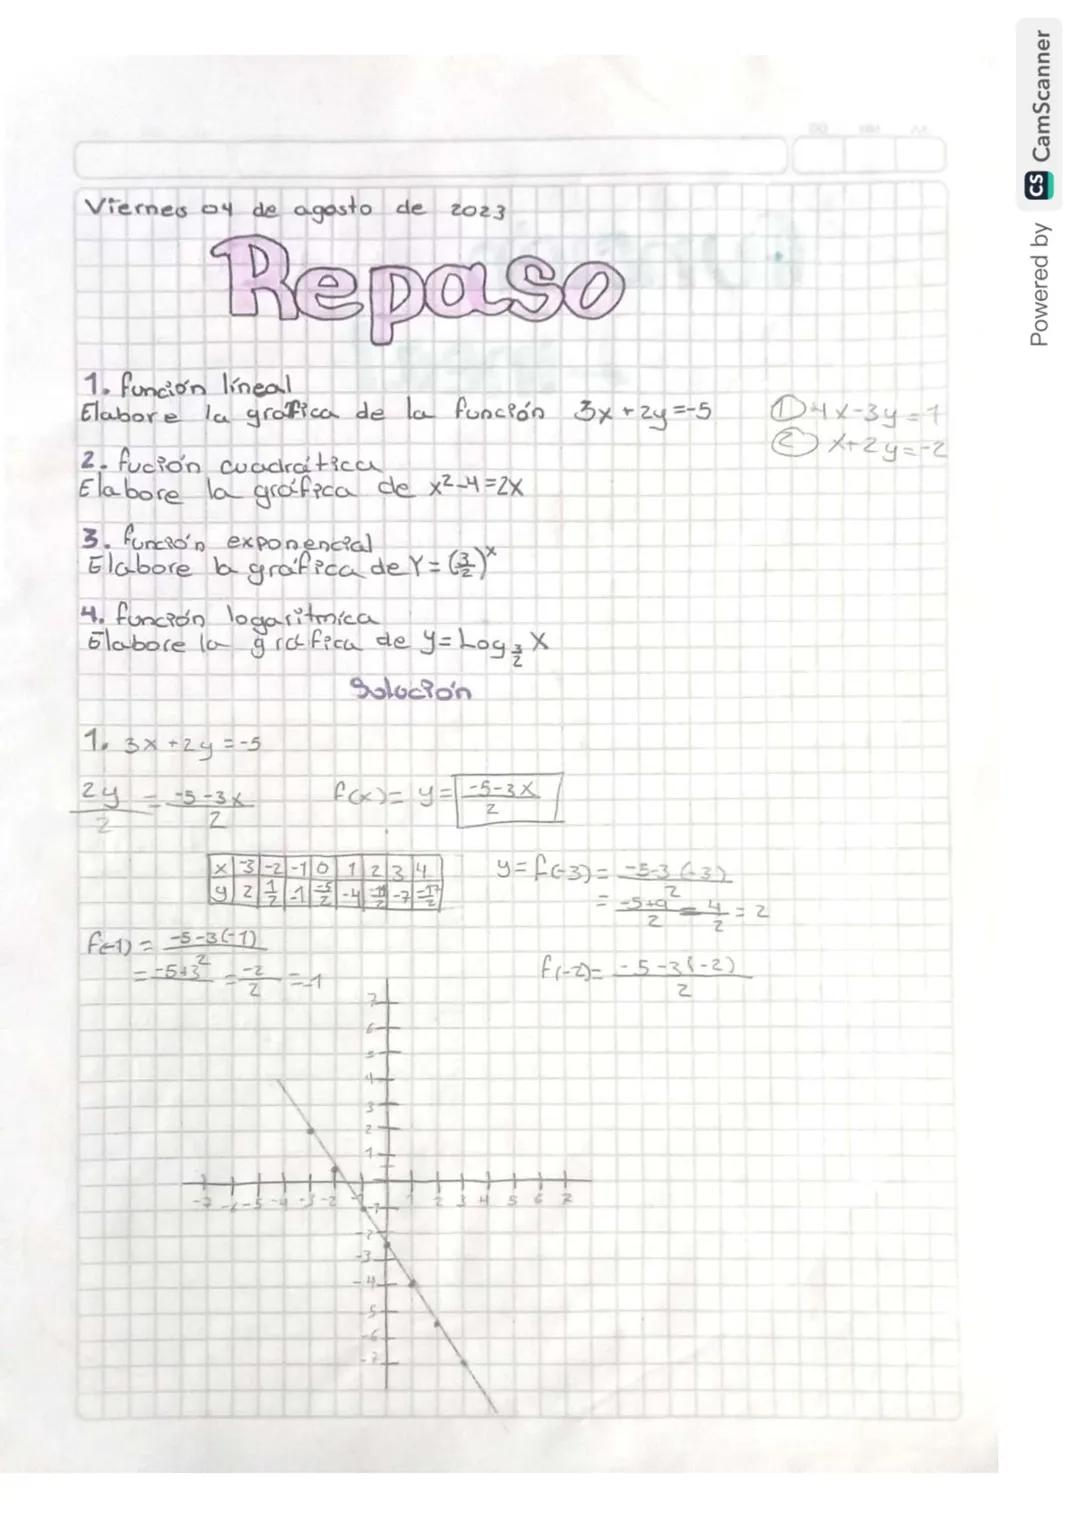 Viernes 04 de agosto de 2023
Repaso
1. función líneal
Elabore la grafica de la función 3x + 2y = -5
① 4x - 3y = 1
② x + 2y = -2
2. fución cuadrática
Elabore la gráfica de x² - 4 = 2x
3. función exponencial
Elabore la gráfica de Y = (3/2)^x
4. función logarítmica
Elabore la gráfica de y = Log 3/2 X
Solución
1. 3x + 2y = -5
2y/2 = -5-3x/2 f(x) = y = -5-3x/2
x -3 -2 -1 0 1 2 3 4
y 2 1/2 -1 -5/2 -4 -11/2 -7 -17/2
y = f(-3) = -5-3(-3)/2
= -5+9/2 = 4/2 = 2
f(-1) = -5-3(-1)/2
= -5+3/2 = -2/2 = -1
f(-2) = -5-3(-2)/2
7
6
5
4
3
2
1
-7 -6 -5 -4 -3 -2 -1 1 2 3 4 5 6 7
-1
-2
-3
-4
-5
-6
-7
Powered by CS CamScanner